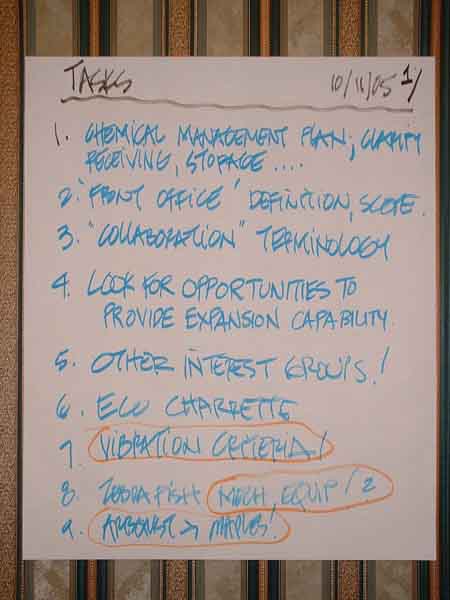 TASKS 10/11/05 1/
1. CHEMICAL MANAGEMENT PLAN; CLARIFY
RECEIVING, STORAGE ....
2. "FRONT OFFICE" DEFINITION, SCOPE.
3. "COLLABORATION" TERMINOLOGY
4. LOOK FOR OPPORTUNITIES TO
PROVIDE EXPANSION CAPABILITY.
5. OTHER INTEREST GROUPS!
6. ECO CHARRETTE
7. VIBRATION CRITERIA!
8. ZEBRAFISH MECH. EQUIP! 2
9. > MAPLES!